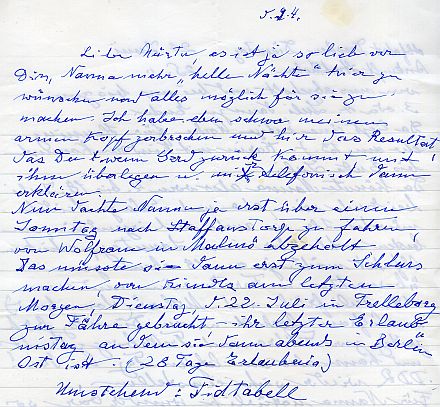 d. 2.4.
Liebe Märta, es ist ja so lieb von
Dir, Nanna mehr "helle Nächte" hier zu
wünschen und alles möglich für sie zu
machen. Ich habe eben schwer meinen
armen Kopf zerbrochen und hier das Resultat
das Du, wenn Gord zurück kommt, mit
ihm überlegen u. mir telefonisch dann
erklären.
Nun dachte Nanna ja erst über einen
Sonntag nach Staffanstorp zu fahren,
von Wolfram in Malmö abgeholt
Das müsste sie dann erst zum Schluss
machen, von am letzten
Morgen, Dienstag, d. 22. Juli in Trelleborg
zur Fähre gebracht - ihr letzter Erlaub-
nistag an dem sie dann abends in Berlin
Ost ist. (28 Tage Erlaubnis)
Umstehend: Tidtabell